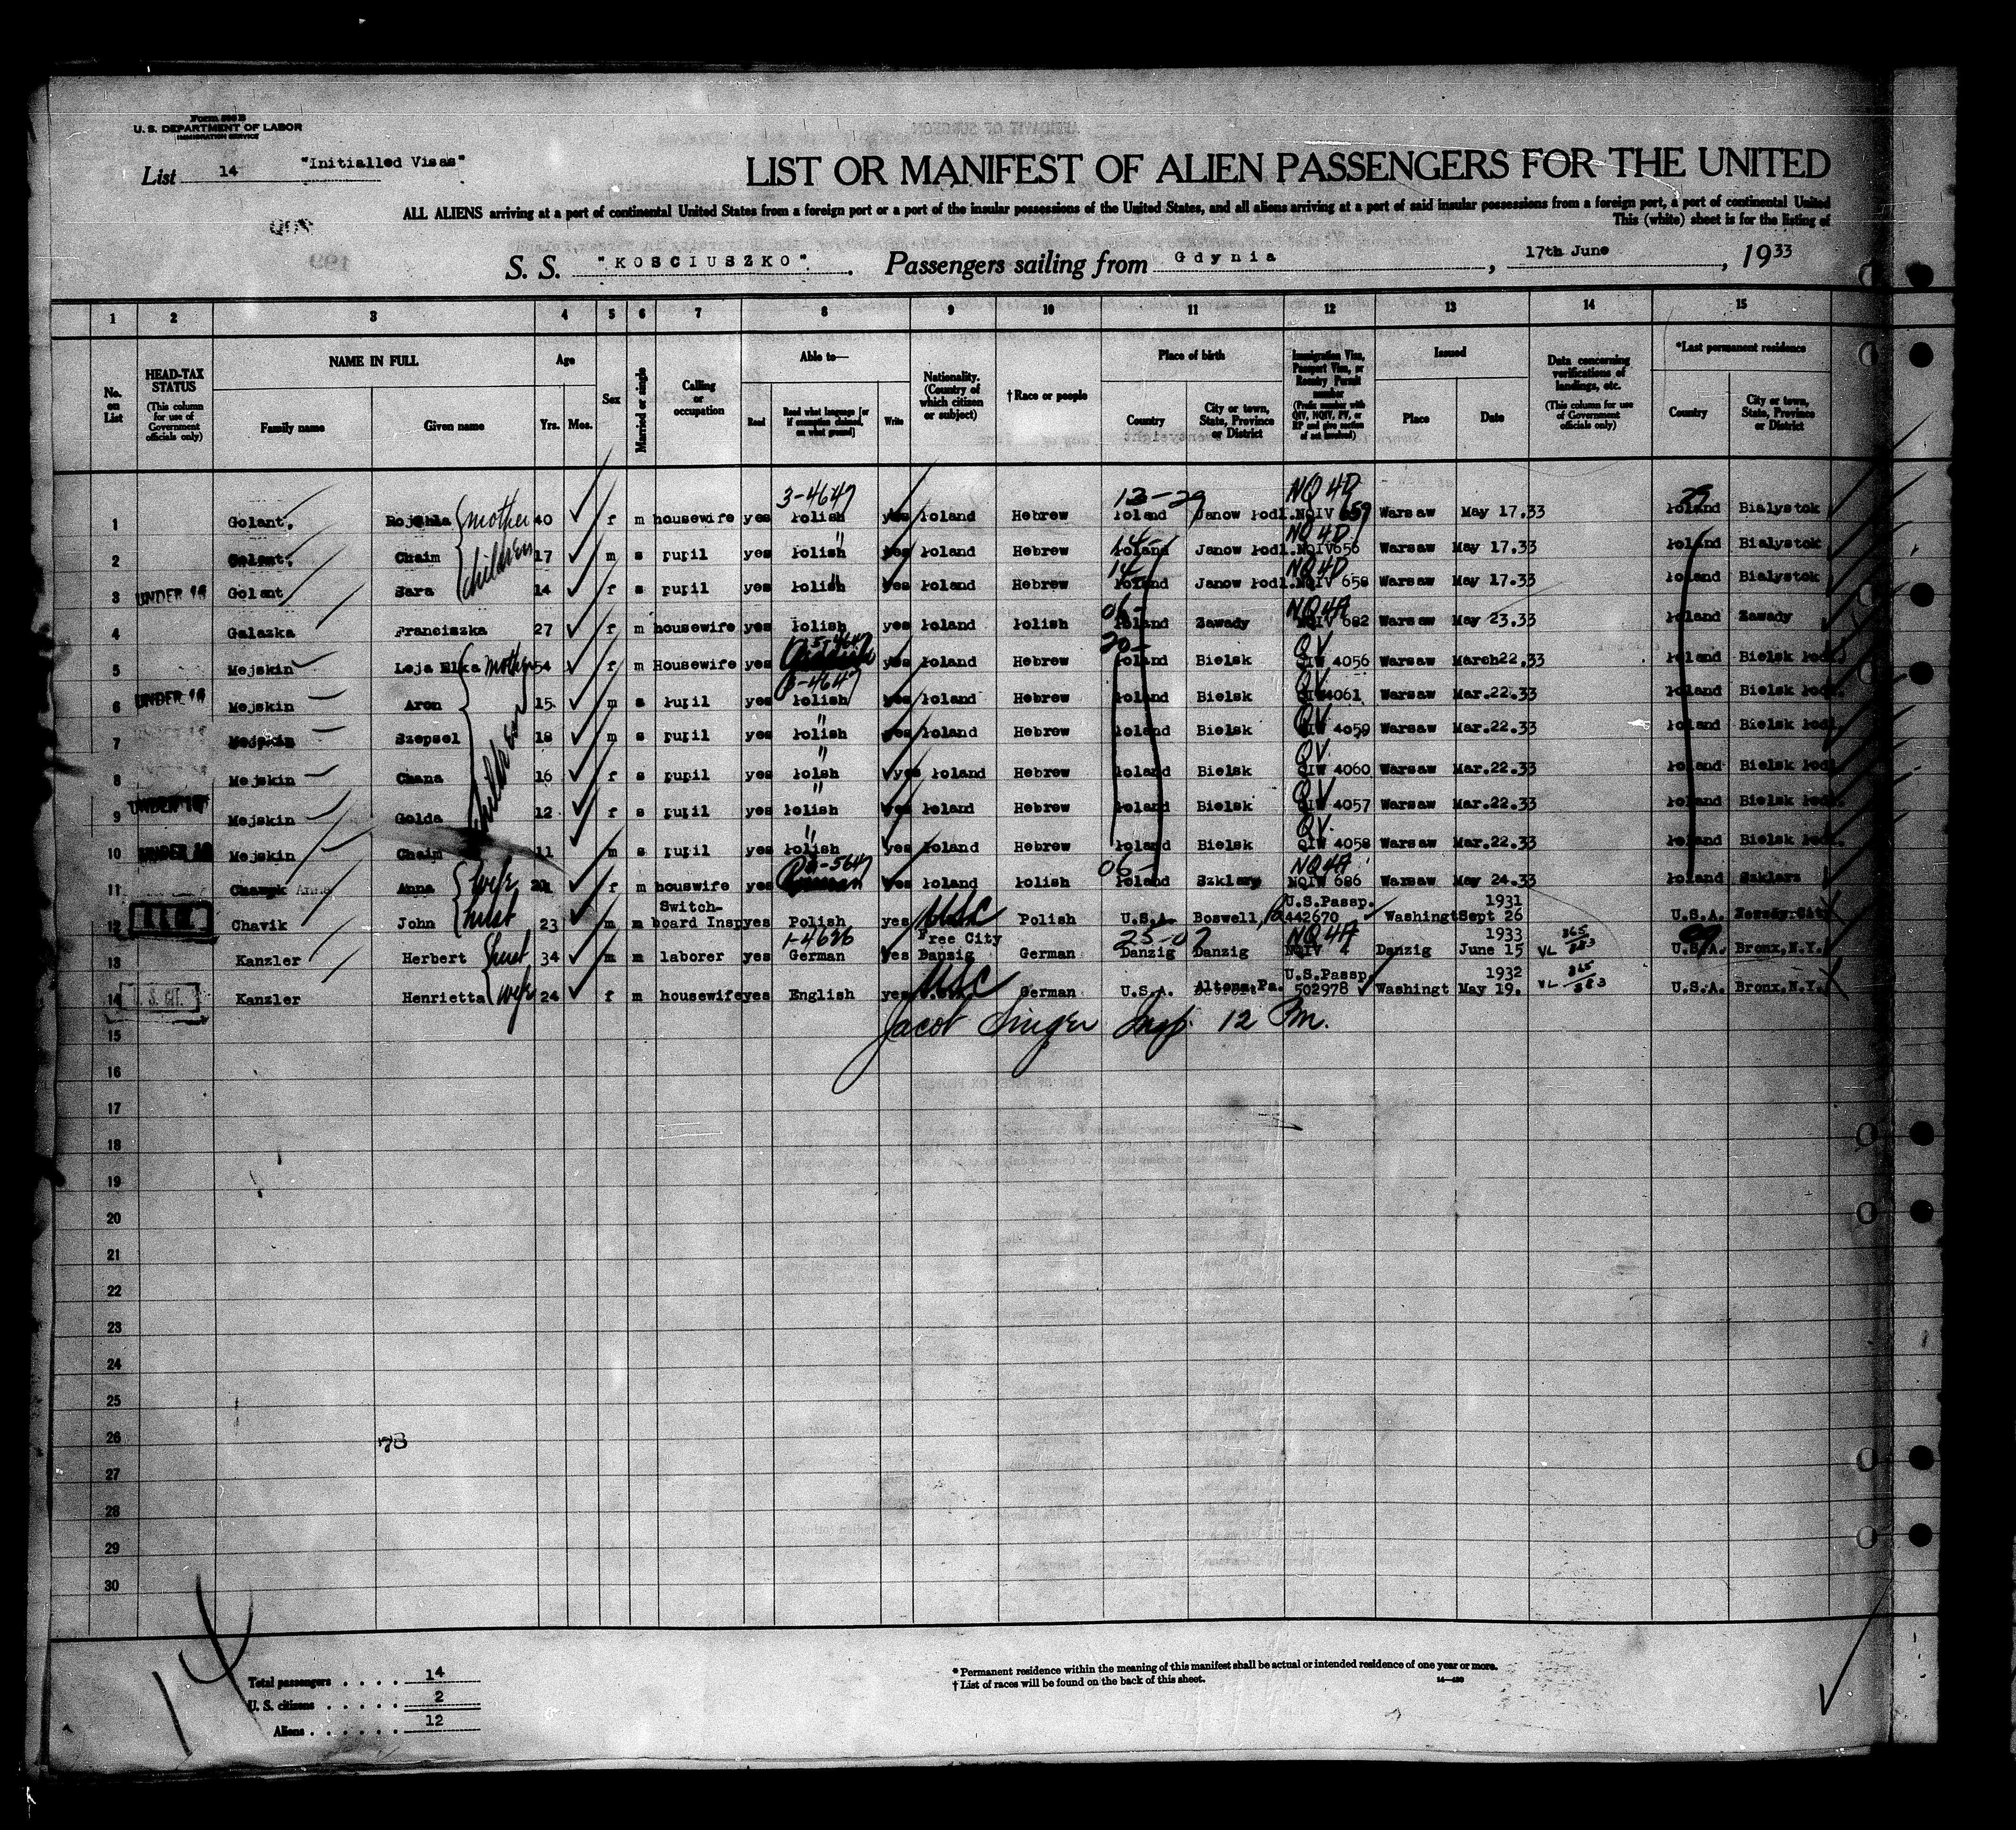 Form 500 B
U. S. DEPARTMENT OF LABOR
IMMIGRATION SERVICE
List 14 "Initialled Visas"
LIST OR MANIFEST OF ALIEN PASSENGERS FOR THE UNITED
ALL ALIENS arriving at a port of continental United States from a foreign port or a port of the insular possessions of the United States, and all aliens arriving at a port of said insular possessions from a foreign port, a port of continental United
This (white) sheet is for the listing of
S. S. "KOSCIUSZKO". Passengers sailing from Gdynia, 17th June, 1933
1 2 3 4 5 6 7 8 9 10 11 12 13 14 15
No. on List
HEAD-TAX STATUS (This column for use of Government officials only)
NAME IN FULL Family name Given name
Age Yrs. Mos.
Sex
Married or single
Calling or occupation
Able to— Read Read what language [or if exemption claimed, on what ground] Write
Nationality. (Country of which citizen or subject)
† Race or people
Place of birth Country City or town, State, Province or District
Immigration Visa, Passport Visa, or Reentry Permit number (Prefix number with QIV, NQIV, PV, or RP and give section of act involved)
Issued Place Date
Data concerning verifications of landings, etc. (This column for use of Government officials only)
*Last permanent residence Country City or town, State, Province or District
3-4647 13-29 NQ 4D 29
1 Golant, Rojchla mother 40 f m housewife yes Polish yes Poland Hebrew Poland Janow Podl. NQIV 659 Warsaw May 17.33 Poland Bialystok
" 14- NQ 4D
2 Golant, Chaim children 17 m s pupil yes Polish yes Poland Hebrew Poland Janow Podl. NQIV 656 Warsaw May 17.33 Poland Bialystok
" 14- NQ 4D
3 UNDER 16 Golant Sara 14 f s pupil yes Polish yes Poland Hebrew Poland Janow Podl. NQIV 658 Warsaw May 17.33 Poland Bialystok
06- NQ 4A
4 Galazka Franciszka 27 f m housewife yes Polish yes Poland Polish Poland Zawady NQIV 682 Warsaw May 23.33 Poland Zawady
5-4647 20- QV
5 Mejskin Leja Elka mother 54 f m Housewife yes yes Poland Hebrew Poland Bielsk QIW 4056 Warsaw March22.33 Poland Bielsk Podl.
3-4647 QV
6 UNDER 16 Mejskin Aron 15 m s Pupil yes Polish yes Poland Hebrew Poland Bielsk QIW 4061 Warsaw Mar.22.33 Poland Bielsk Podl.
" QV
7 Mejskin Szepsel children 18 m s pupil yes Polish yes Poland Hebrew Poland Bielsk QIW 4059 Warsaw Mar.22.33 Poland Bielsk Podl.
" QV
8 Mejskin Chana 16 f s pupil yes Polsh yes Poland Hebrew Poland Bielsk QIW 4060 Warsaw Mar.22.33 Poland Bielsk Podl.
" QV
9 UNDER 16 Mejskin Golda 12 f s pupil yes Polish yes Poland Hebrew Poland Bielsk QIW 4057 Warsaw Mar.22.33 Poland Bielsk Podl.
" QV.
10 UNDER 16 Mejskin Chaim 11 m s pupil yes Polish yes Poland Hebrew Poland Bielsk QIW 4058 Warsaw Mar.22.33 Poland Bielsk Podl.
06- NQ 4A
11 Anna wife f m houswife yes yes Poland Polish Poland Szklary NQIW 686 Warsaw May 24.33 Poland Szklarz
Switch- U.S.Passp. 1931
12 Chavik John husb 23 m m board Insp yes Polish yes USC Polish U.S.A. Boswell, Pa 442670 Washingt Sept 26 U.S.A.
1-4626 Free City 25-07 NQ 4A 1933 99
13 Kanzler Herbert husb 34 m m laborer yes German yes Danzig German Danzig Danzig NQIV 4 Danzig June 15 VL 865/383 U.S.A. Bronx,N.Y.
U.S.Passp. 1932
14 U. S. CIT. Kanzler Henrietta wife 24 f m housewife yes English yes USC German U.S.A. Altona Pa. 502978 Washingt May 19. VL 865/383 U.S.A. Bronx,N.Y.
15 Jacob Singer Insp. 12 Pm.
16
17
18
19
20
21
22
23
24
25
26 78
27
28
29
30
14
Total passengers . . . . 14
U. S. citizens . . . . . 2
Aliens . . . . . . 12
* Permanent residence within the meaning of this manifest shall be actual or intended residence of one year or more.
† List of races will be found on the back of this sheet.
14—430